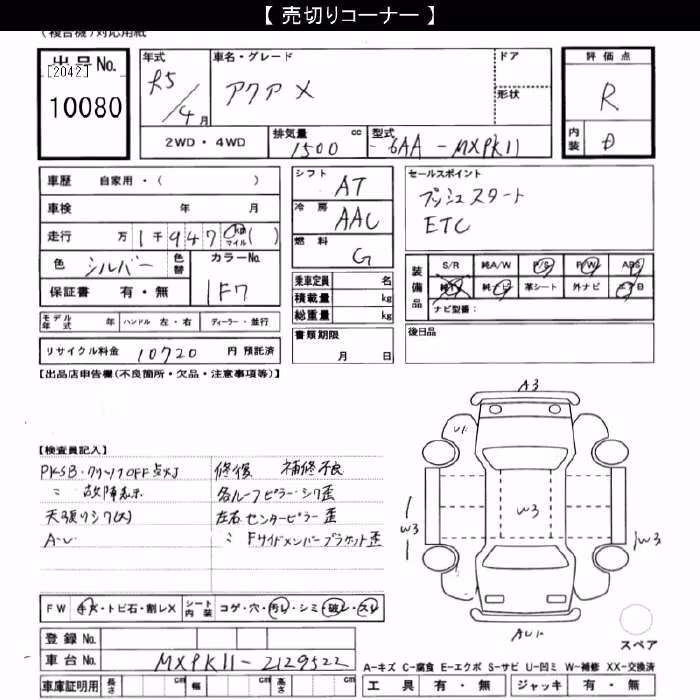 【 売切りコーナー 】
（複合機）対応用紙
出品No.
[2042]
10080
年式
R5/4月
車名・グレード
アクア X
ドア
形状
評価点
R
内装
D
2WD・4WD
排気量 1500 cc
型式 6AA-MXPK11
車歴 自家用・( )
車検 年 月
走行 万 1千947 km マイル( )
色 シルバー 色替
カラーNo. 1F7
保証書 有・無
シフト AT
冷房 AAC
燃料 G
乗車定員 名
積載量 kg
総重量 kg
書類期限
月 日
セールスポイント
プッシュスタート
ETC
装備品
S/R 純A/W P/S P/W ABS
純ナビ 革シート 外ナビ
ナビ型番：
後日品
モデル年式 年 ハンドル 左・右 ディーラー・並行
リサイクル料金 10720 円 預託済
【出品店申告欄(不良箇所・欠品・注意事項等)】
【検査員記入】
PKSB・クリソナOFF点灯
〃 故障表示
天張りシワ(大)
A-U
修復 補修不良
各ルーフピラー・シワ歪
左右センターピラー歪
〃 Fサイドメンバーブラケット歪
A3
U1
W3
W3
W3
AU1
スペア
FW キズ・トビ石・割レX シート内装 コゲ・穴・汚レ・シミ・破レ・スレ
登録No.
車台No. MXPK11-2129522
車庫証明用 長さ cm 幅 cm 高さ cm
A-キズ C-腐食 E-エクボ S-サビ U-凹ミ W-補修 XX-交換済
工具 有・無 ジャッキ 有・無